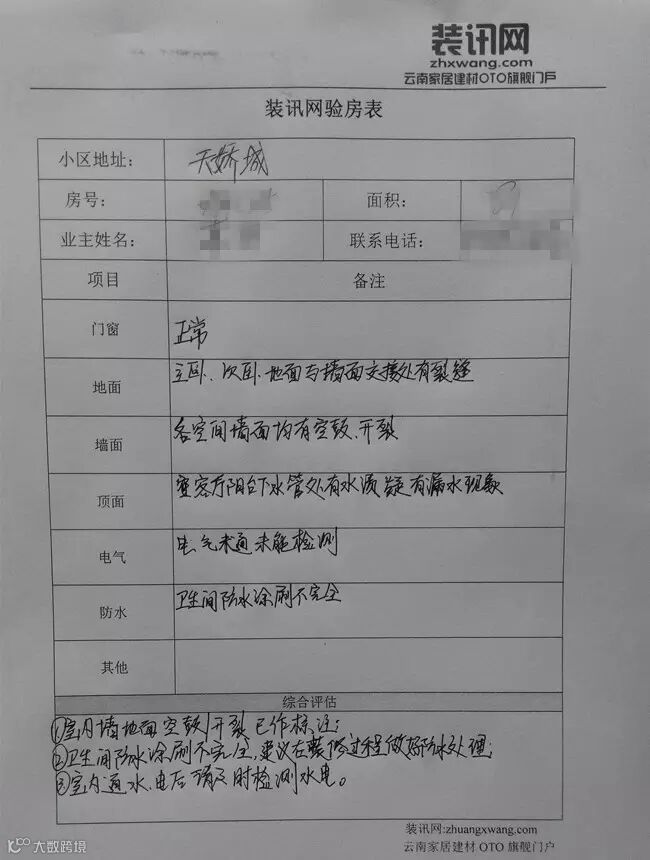 装讯网
zhxwang.com
云南家居建材OTO旗舰门户
装讯网验房表
小区地址: 天娇城
房号: 面积:
业主姓名: 联系电话:
项目 备注
门窗 正常
地面 主卧、次卧地面与墙面交接处有裂缝
墙面 各空间墙面均有空鼓、开裂
顶面 客厅阳台下水管处有水渍疑有漏水现象
电气 电气未通未能检测
防水 卫生间防水涂刷不完全
其他
综合评估
①室内墙地面空鼓开裂已作标注;
②卫生间防水涂刷不完全,建议在装修过程做好防水处理;
③室内通水、电后请及时检测水电。
装讯网:zhuangxwang.com
云南家居建材 OTO 旗舰门户
大数跨境